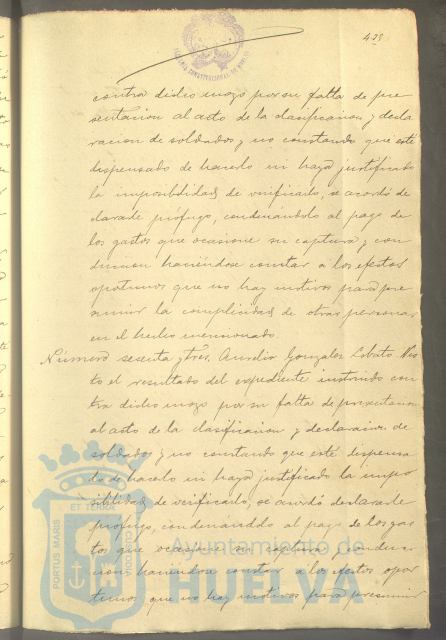 428
ALCALDIA CONSTITUCIONAL DE HUELVA
contra dicho mozo por su falta de pre
sentacion al acto de la clasificacion y decla
racion de soldados y no constando que esté
dispensado de hacerlo ni haya justificado
la imposibilidad de verificarlo, se acordó de
clararle prófugo, condenándolo al pago de
los gastos que ocasione su captura y con
duccion haciéndose constar a los efectos
oportunos que no hay motivos para pre
sumir la complicidad de otras personas
en el hecho mencionado
Número sesenta y tres. Aurelio Gonzalez Lobato Vis
to el resultado del expediente instruido con
tra dicho mozo por su falta de presentacion
al acto de la clasificacion y declaracion de
soldados y no constando que esté dispensa
do de hacerlo ni haya justificado la impo
sibilidad de verificarlo, se acordó declararle
prófugo, condenandolo al pago de los gas
tos que ocasione su captura y conduc
cion haciendose constar a los efectos opor
tunos que no hay motivos para presumir
PORTUS MARIS ET TERRAE CUSTODIA
Ayuntamiento de
HUELVA